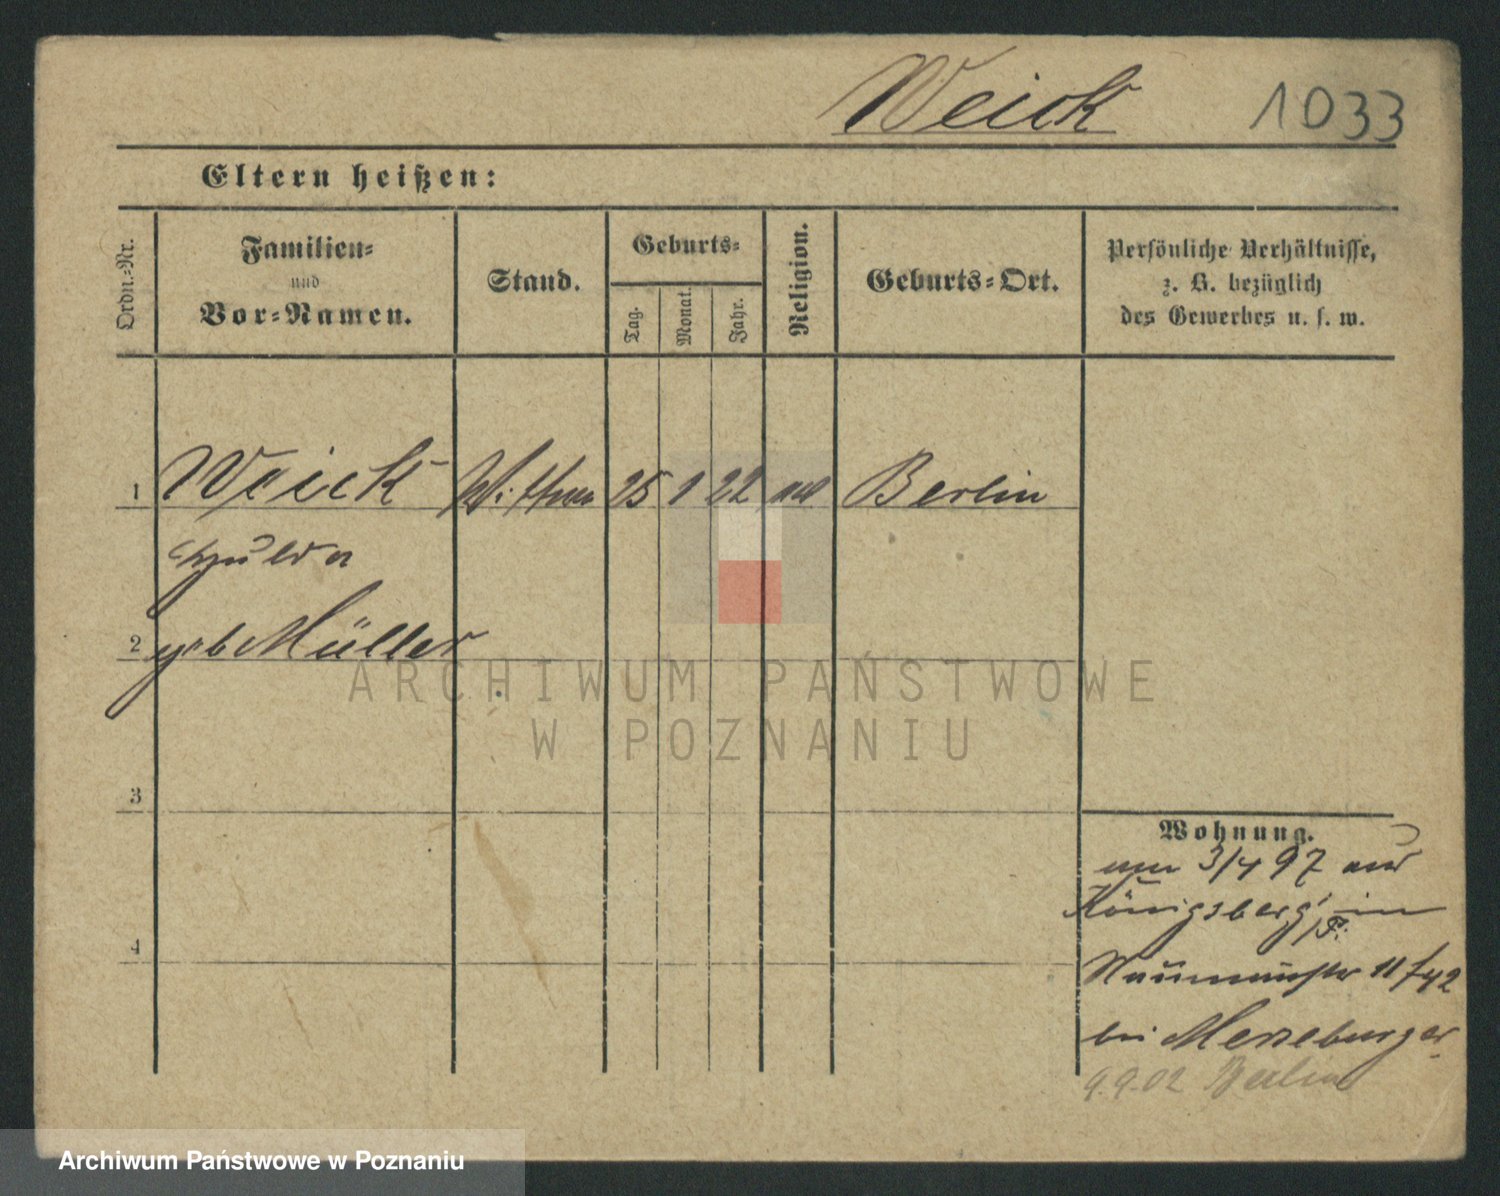 Weick 1033
Eltern heißen:
Ordn.-Nr.
Familien-
und
Vor-Namen.
Stand.
Geburts-
Tag.
Monat.
Jahr.
Religion.
Geburts-Ort.
Persönliche Verhältnisse,
z. B. bezüglich
des Gewerbes u. s. w.
1 Weick Wittwe 25 1 22 Berlin
Hulda
2 geb Müller
3
4
Wohnung.
am 3/4 97 aus
Königsberg i/P. in
11/42
bei Merseburger
9.9.02 Berlin
ARCHIWUM PAŃSTWOWE
W POZNANIU
Archiwum Państwowe w Poznaniu